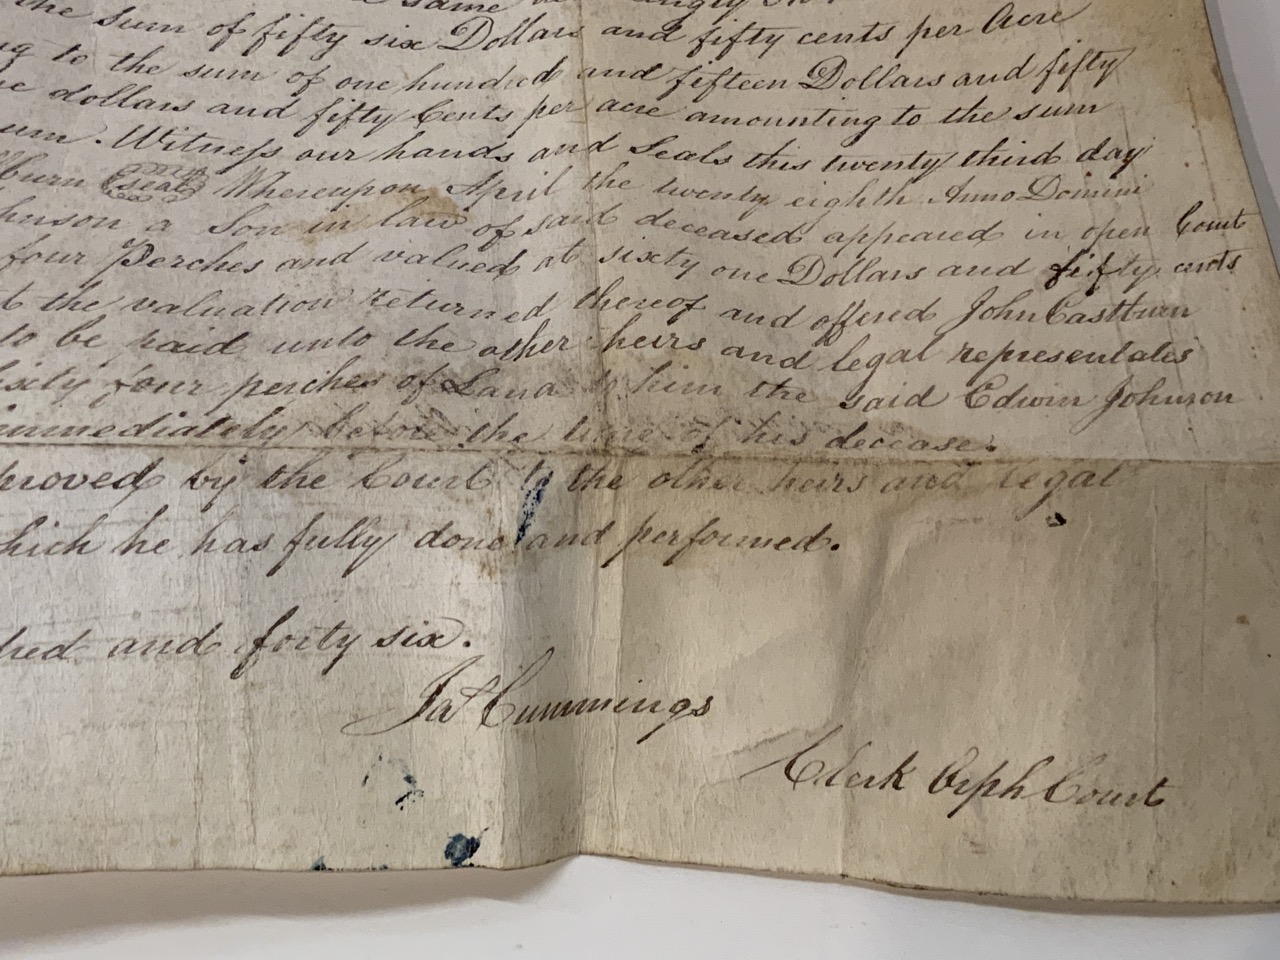 the same
the sum of fifty six Dollars and fifty cents per Acre
to the sum of one hundred and fifteen Dollars and fifty
dollars and fifty Cents per acre amounting to the sum
Witness our hands and Seals this twenty third day
burn (Seal) Whereupon April the twenty eighth Anno Domini
a Son in law of said deceased appeared in open Court
four Perches and valued at sixty one Dollars and fifty cents
the valuation returned thereof and offered John Eastburn
to be paid unto the other heirs and legal representates
sixty four perches of Land to him the said Edwin Johnson
immediately before the time of his decease.
proved by the Court to the other heirs and legal
which he has fully done and performed.
dred and forty six.
Jas Cummings
Clerk Orph Court